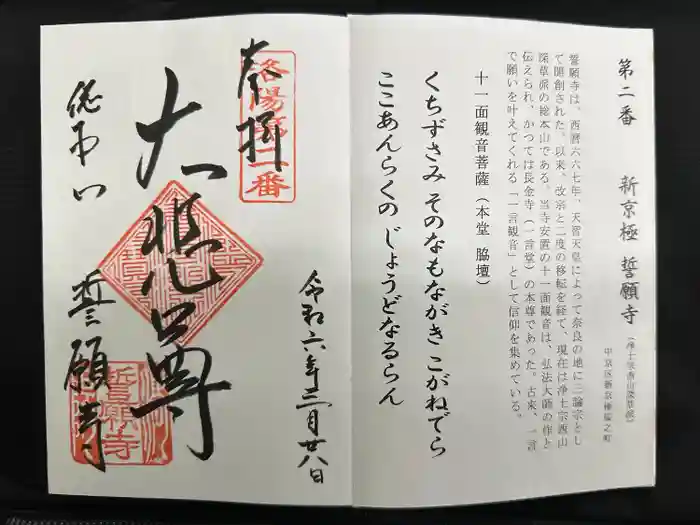 第二番 新京極 誓願寺(浄土宗西山深草派)
中京区新京極桜之町
誓願寺は、西暦六六七年、天智天皇によって奈良の地に三論宗とし
て開創された。以来、改宗と二度の移転を経て、現在は浄土宗西山
深草派の総本山である。当寺安置の十一面観音は、弘法大師の作と
伝えられ、かつては長金寺(一言堂)の本尊であった。古来、一言
で願いを叶えてくれる「一言観音」として信仰を集めている。
十一面観音菩薩(本堂 脇壇)
くちずさみ そのなもながき こがねでら
ここあんらくの じょうどなるらん
令和六年三月廿八日
奉拝
洛陽第二番
大悲尊
誓願寺
誓願寺